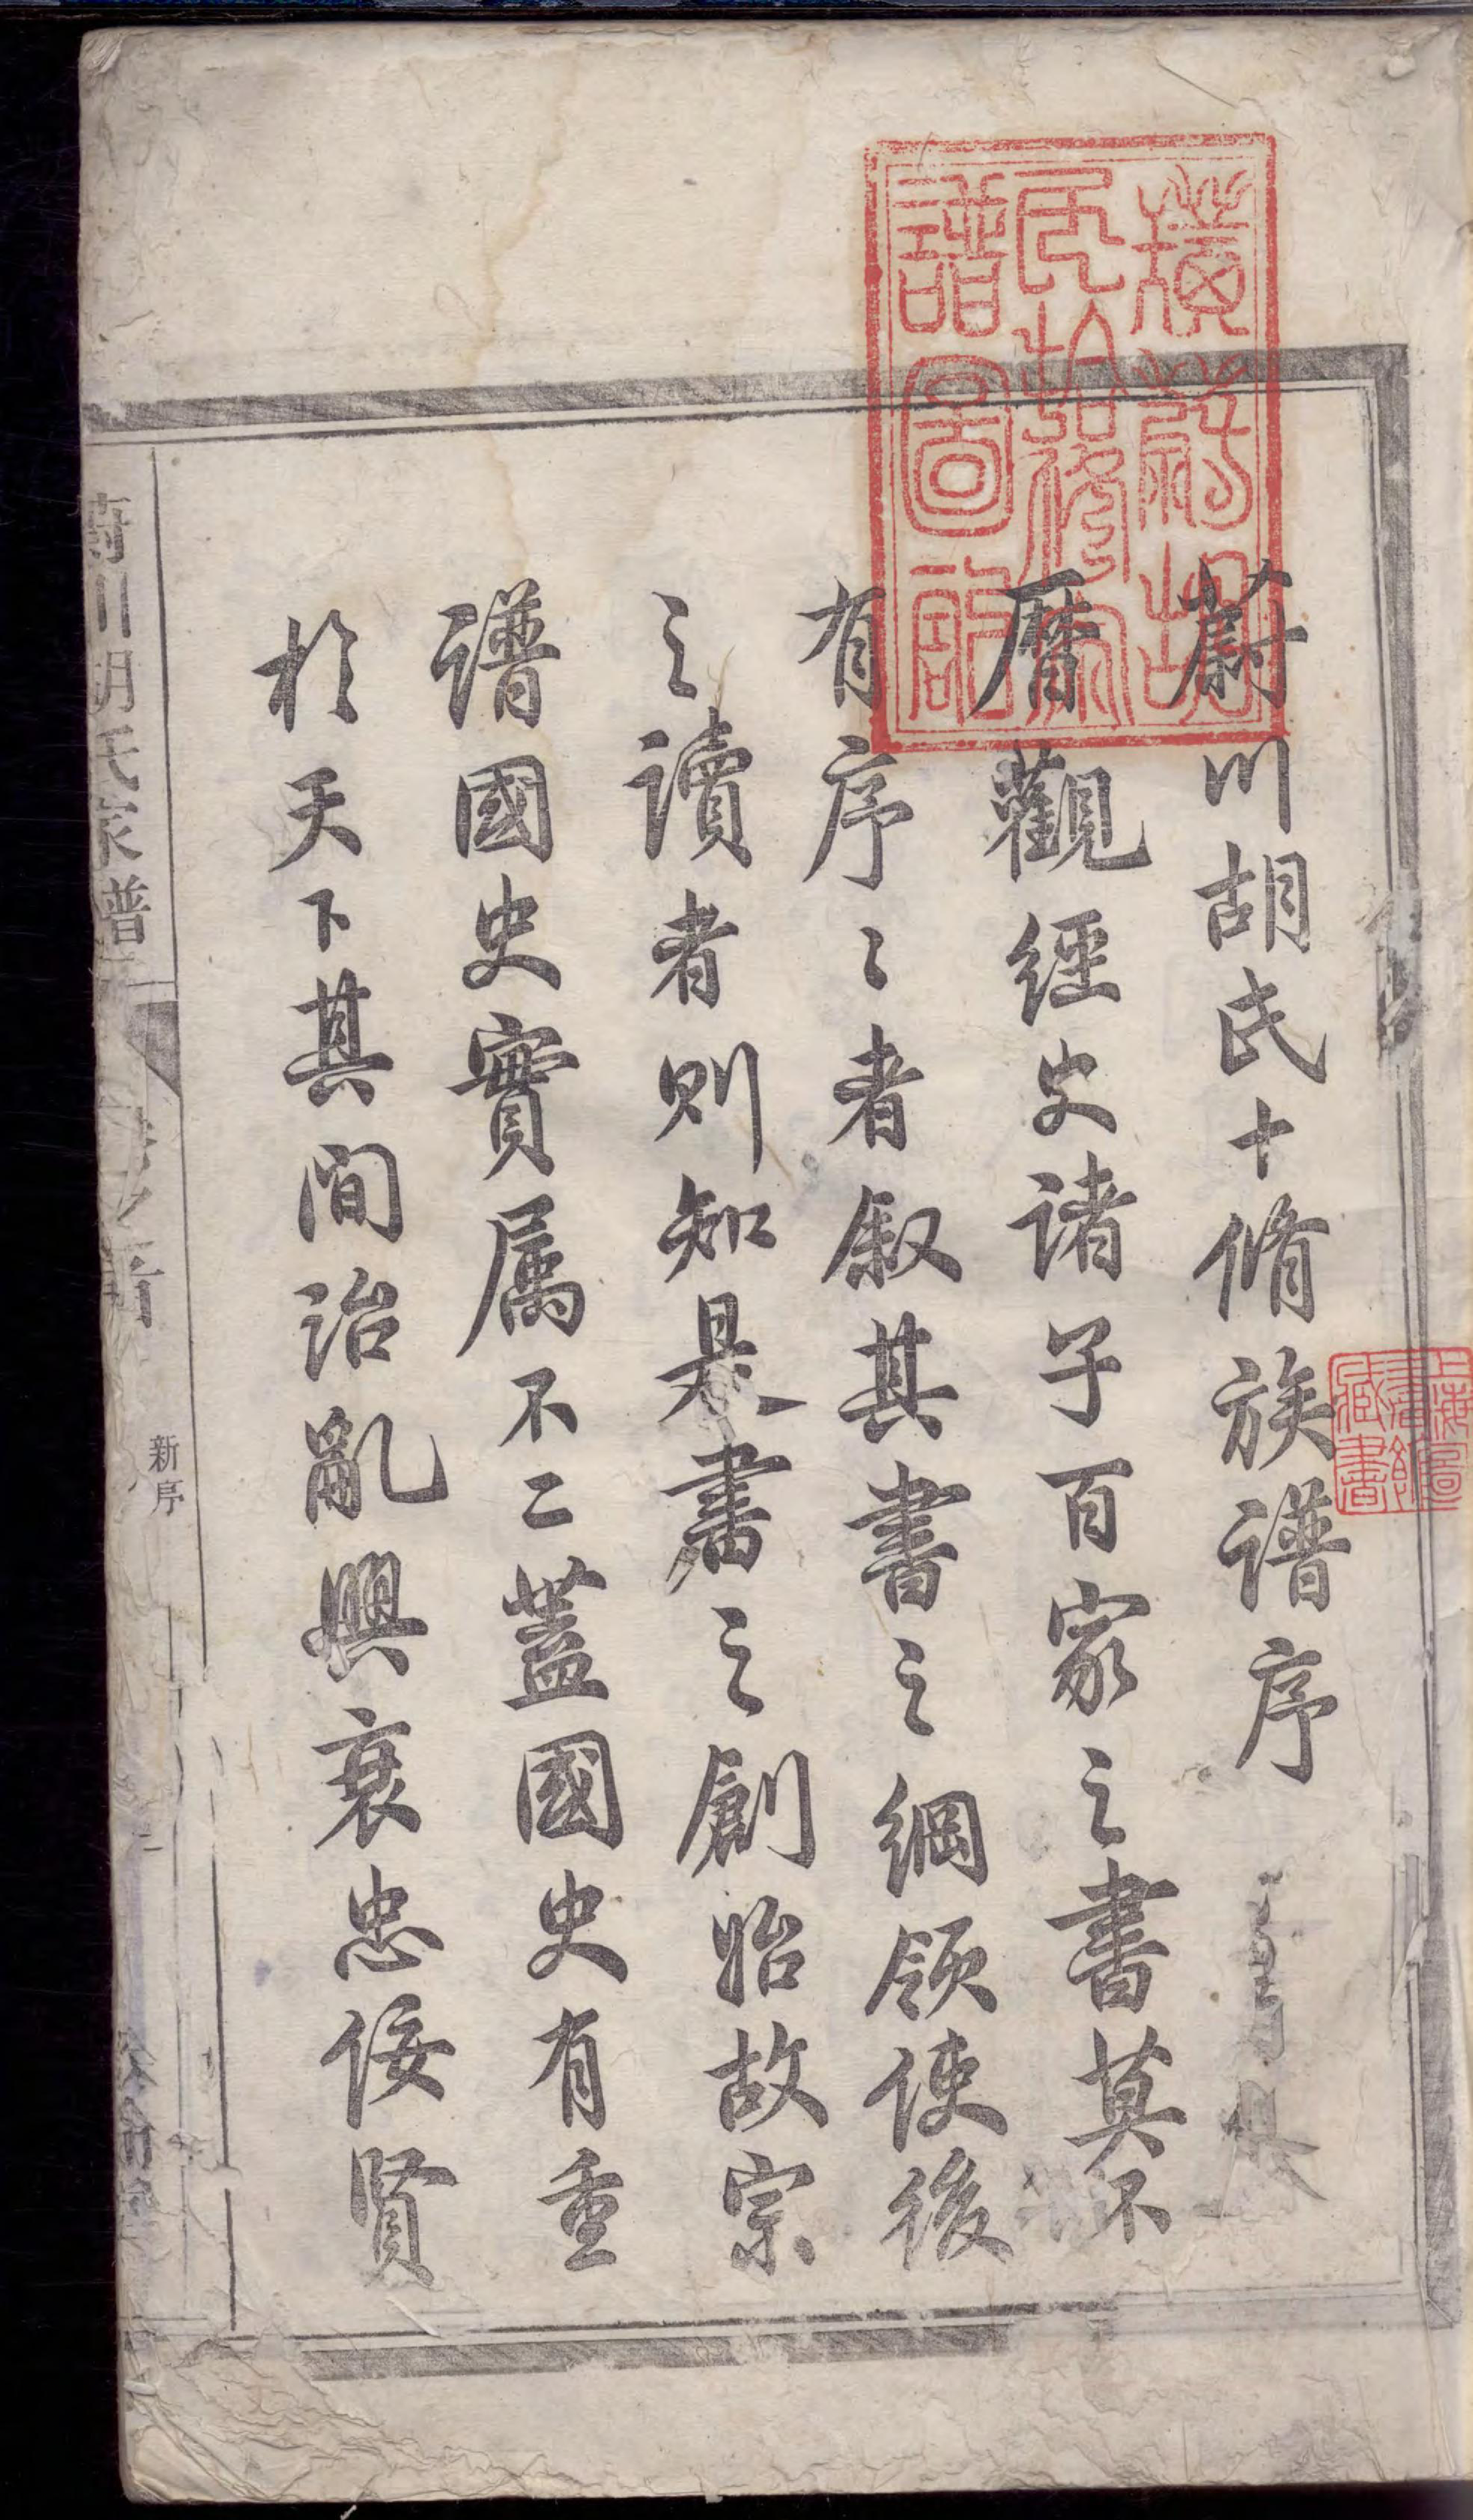 蔚川胡氏十脩族譜序
曆觀經史諸子百家之書莫不
有序〻者叙其書之綱領使後
之讀者則知是書之創始故宗
譜國史實属不二蓋國史有重
於天下其間治亂興衰忠佞賢
川胡氏家譜
新序
胡
氏拾修家
譜圖記
上海圖
書館
藏書